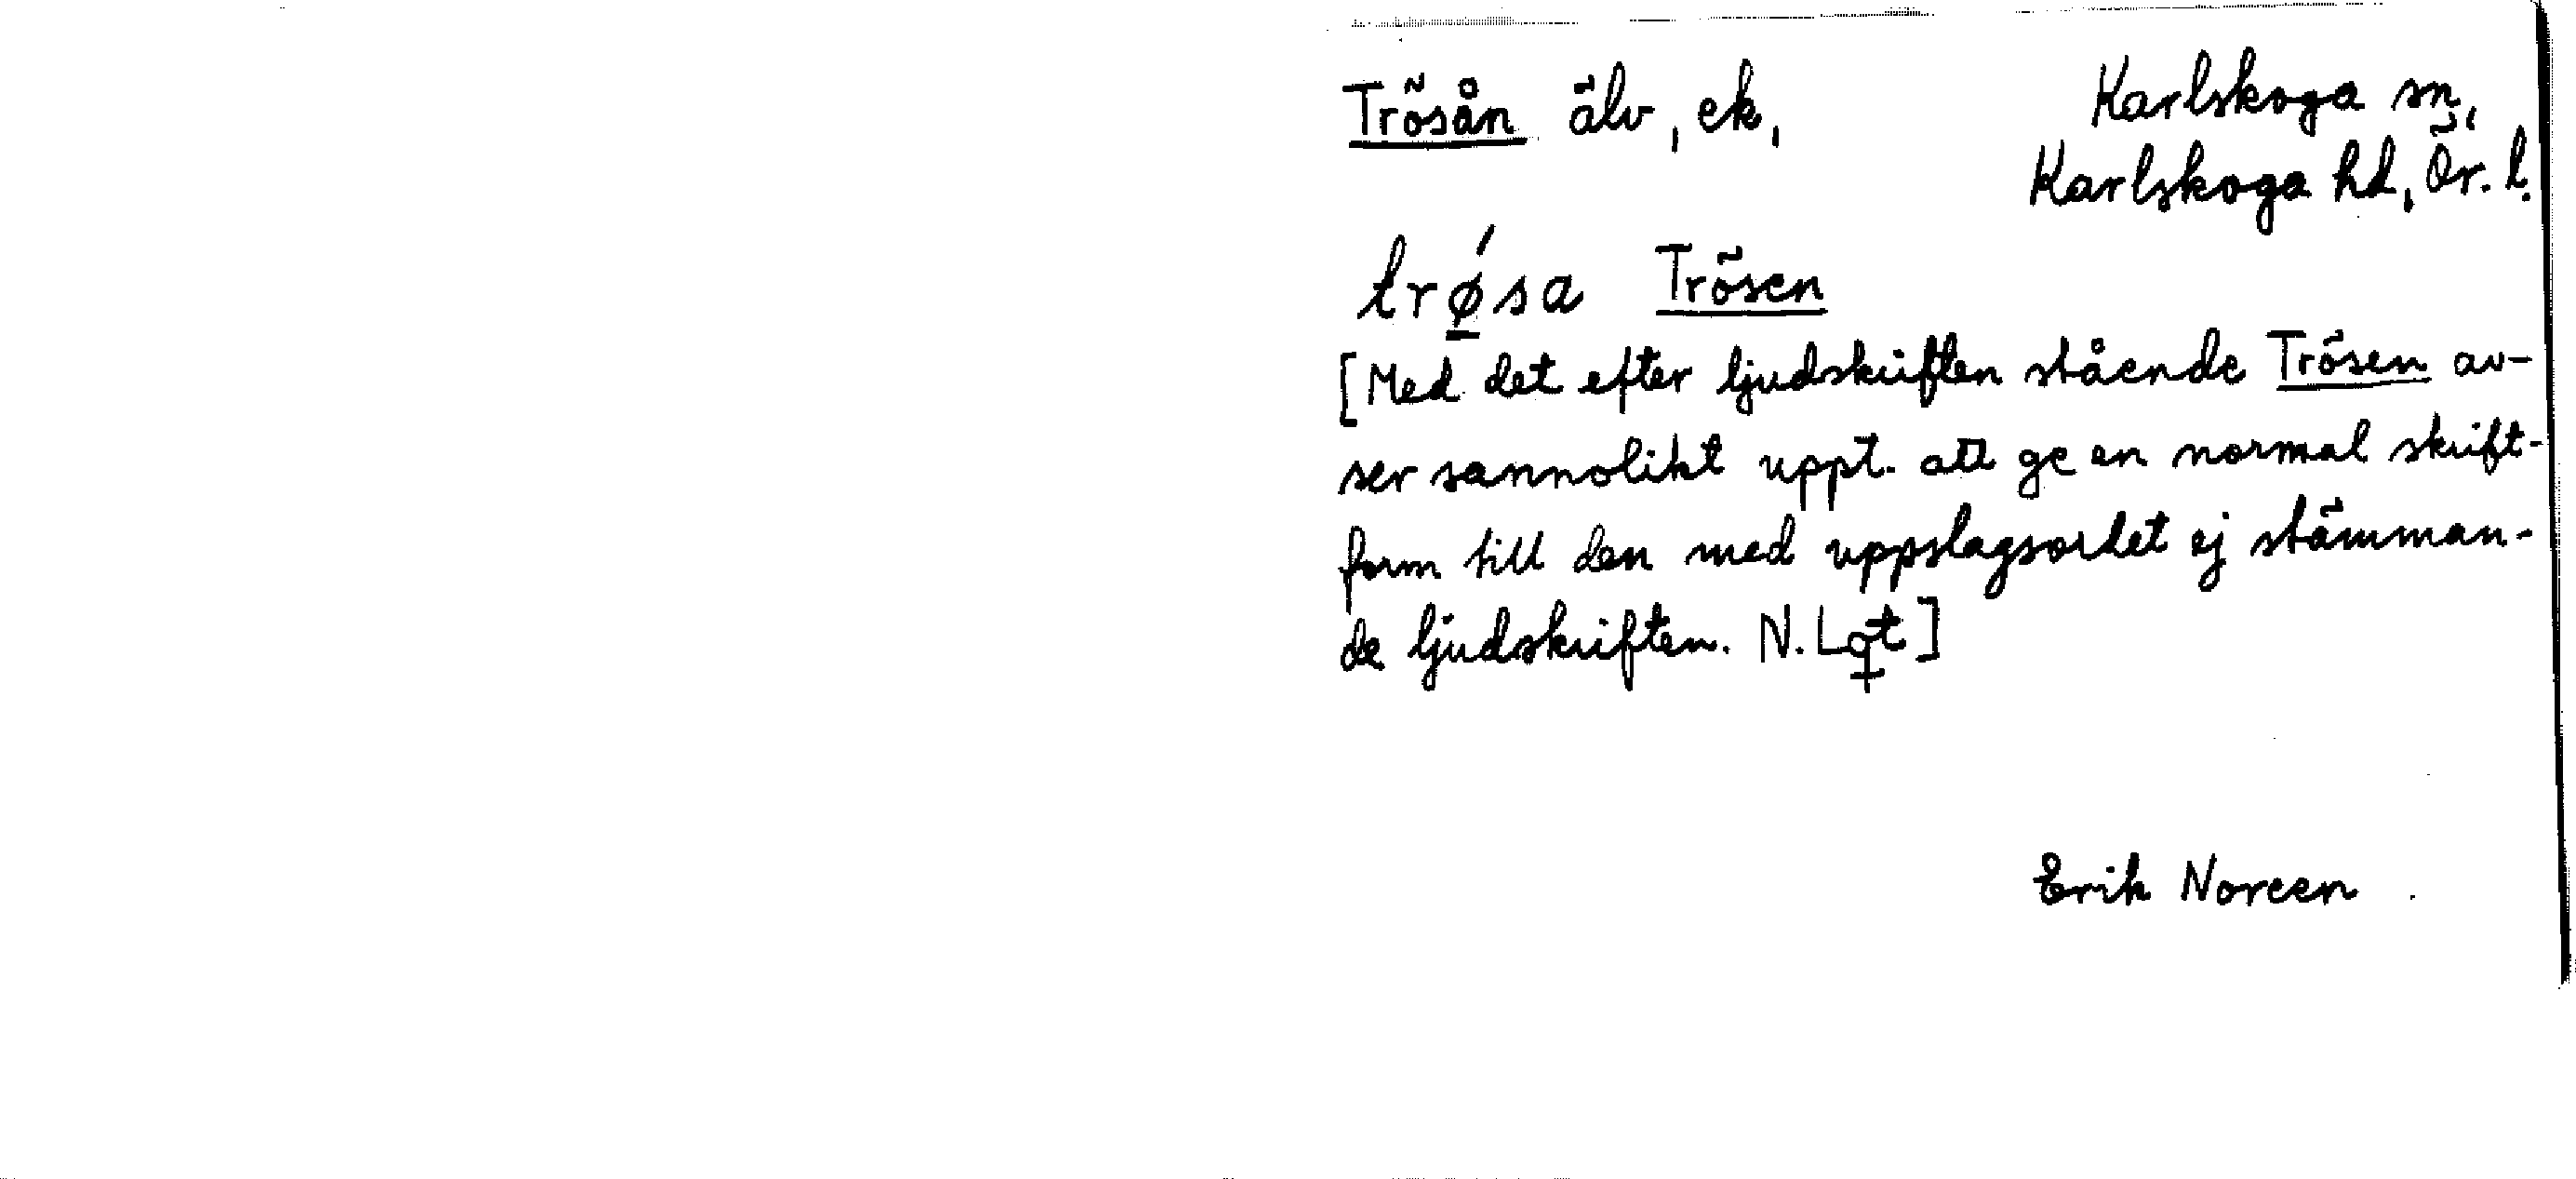 Trösån älv, ek, Karlskoga sn,
Karlskoga hd, Ör. l.
trǿ̲sa Trösen
[Med det efter ljudskriften stående Trösen av-
ser sannolikt uppt. att ge en normal skrift-
form till den med uppslagsordet ej stämman-
de ljudskriften. N. Lqt]
Erik Noreen